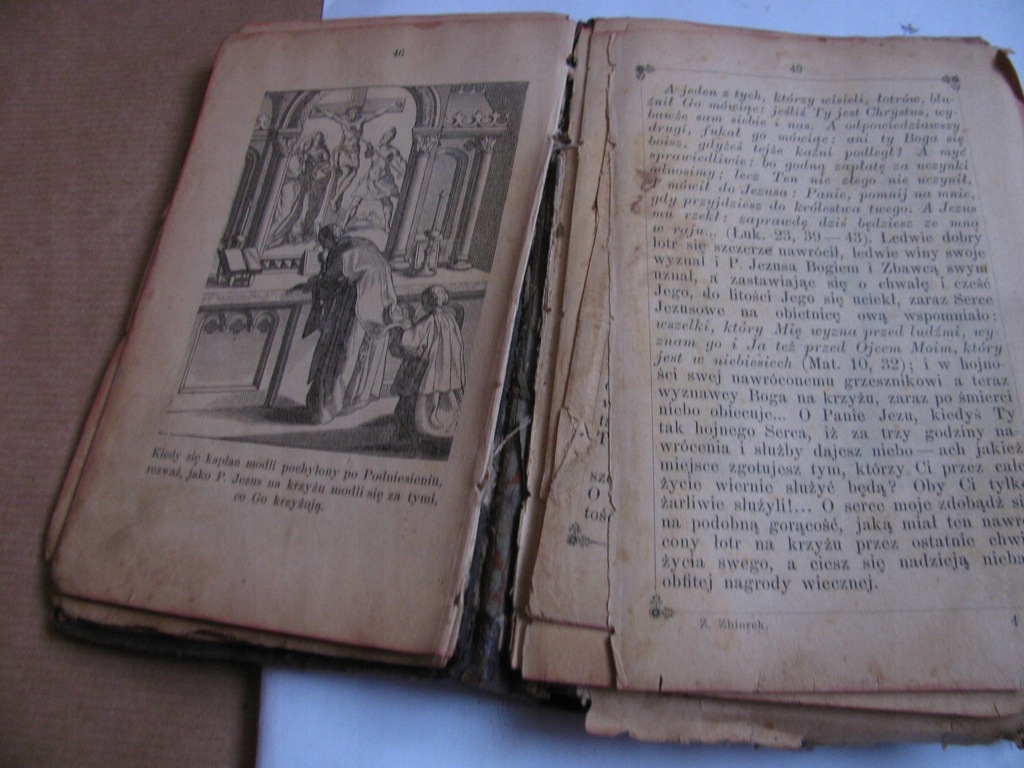 46
Kiedy się kapłan modli pochylony po Podniesieniu,
rozważ, jako P. Jezus na krzyżu modli się za tymi,
co Go krzyżują.
sz
O
toś
49
A jeden z tych, którzy wisieli, łotrów, blu-
źnił Go mówiąc: jeśliś Ty jest Chrystus, wy-
bawże sam siebie i nas. A odpowiedziawszy
drugi, fukał go mówiąc: ani ty Boga się
boisz, gdyżeś tejże kaźni podległ? A myć
sprawiedliwie: bo godną zapłatę za uczynki
odnosimy; lecz Ten nic złego nie uczynił.
I mówił do Jezusa: Panie, pomnij na mnie,
gdy przyjdziesz do królestwa twego. A Jezus
mu rzekł: zaprawdę dziś będziesz ze mną
w raju... (Łuk. 23, 39—43). Ledwie dobry
łotr się szczerze nawrócił, ledwie winy swoje
wyznał i P. Jezusa Bogiem i Zbawcą swym
uznał, a zastawiając się o chwałę i cześć
Jego, do litości Jego się uciekł, zaraz Serce
Jezusowe na obietnicę ową wspomniało:
wszelki, który Mię wyzna przed ludźmi, wy-
znam go i Ja też przed Ojcem Moim, który
jest w niebiesiech (Mat. 10, 32); i w hojno-
ści swej nawróconemu grzesznikowi a teraz
wyznawcy Boga na krzyżu, zaraz po śmierci
niebo obiecuje... O Panie Jezu, kiedyś Ty
tak hojnego Serca, iż za trzy godziny na-
wrócenia i służby dajesz niebo — ach jakież
miejsce zgotujesz tym, którzy Ci przez całe
życie wiernie służyć będą? Oby Ci tylko
żarliwie służyli!... O serce moje zdobądź si
na podobną gorącość, jaką miał ten nawr
cony łotr na krzyżu przez ostatnie chwi
życia swego, a ciesz się nadzieją nieba
obfitej nagrody wiecznej.
Z. Zbiorek. 4